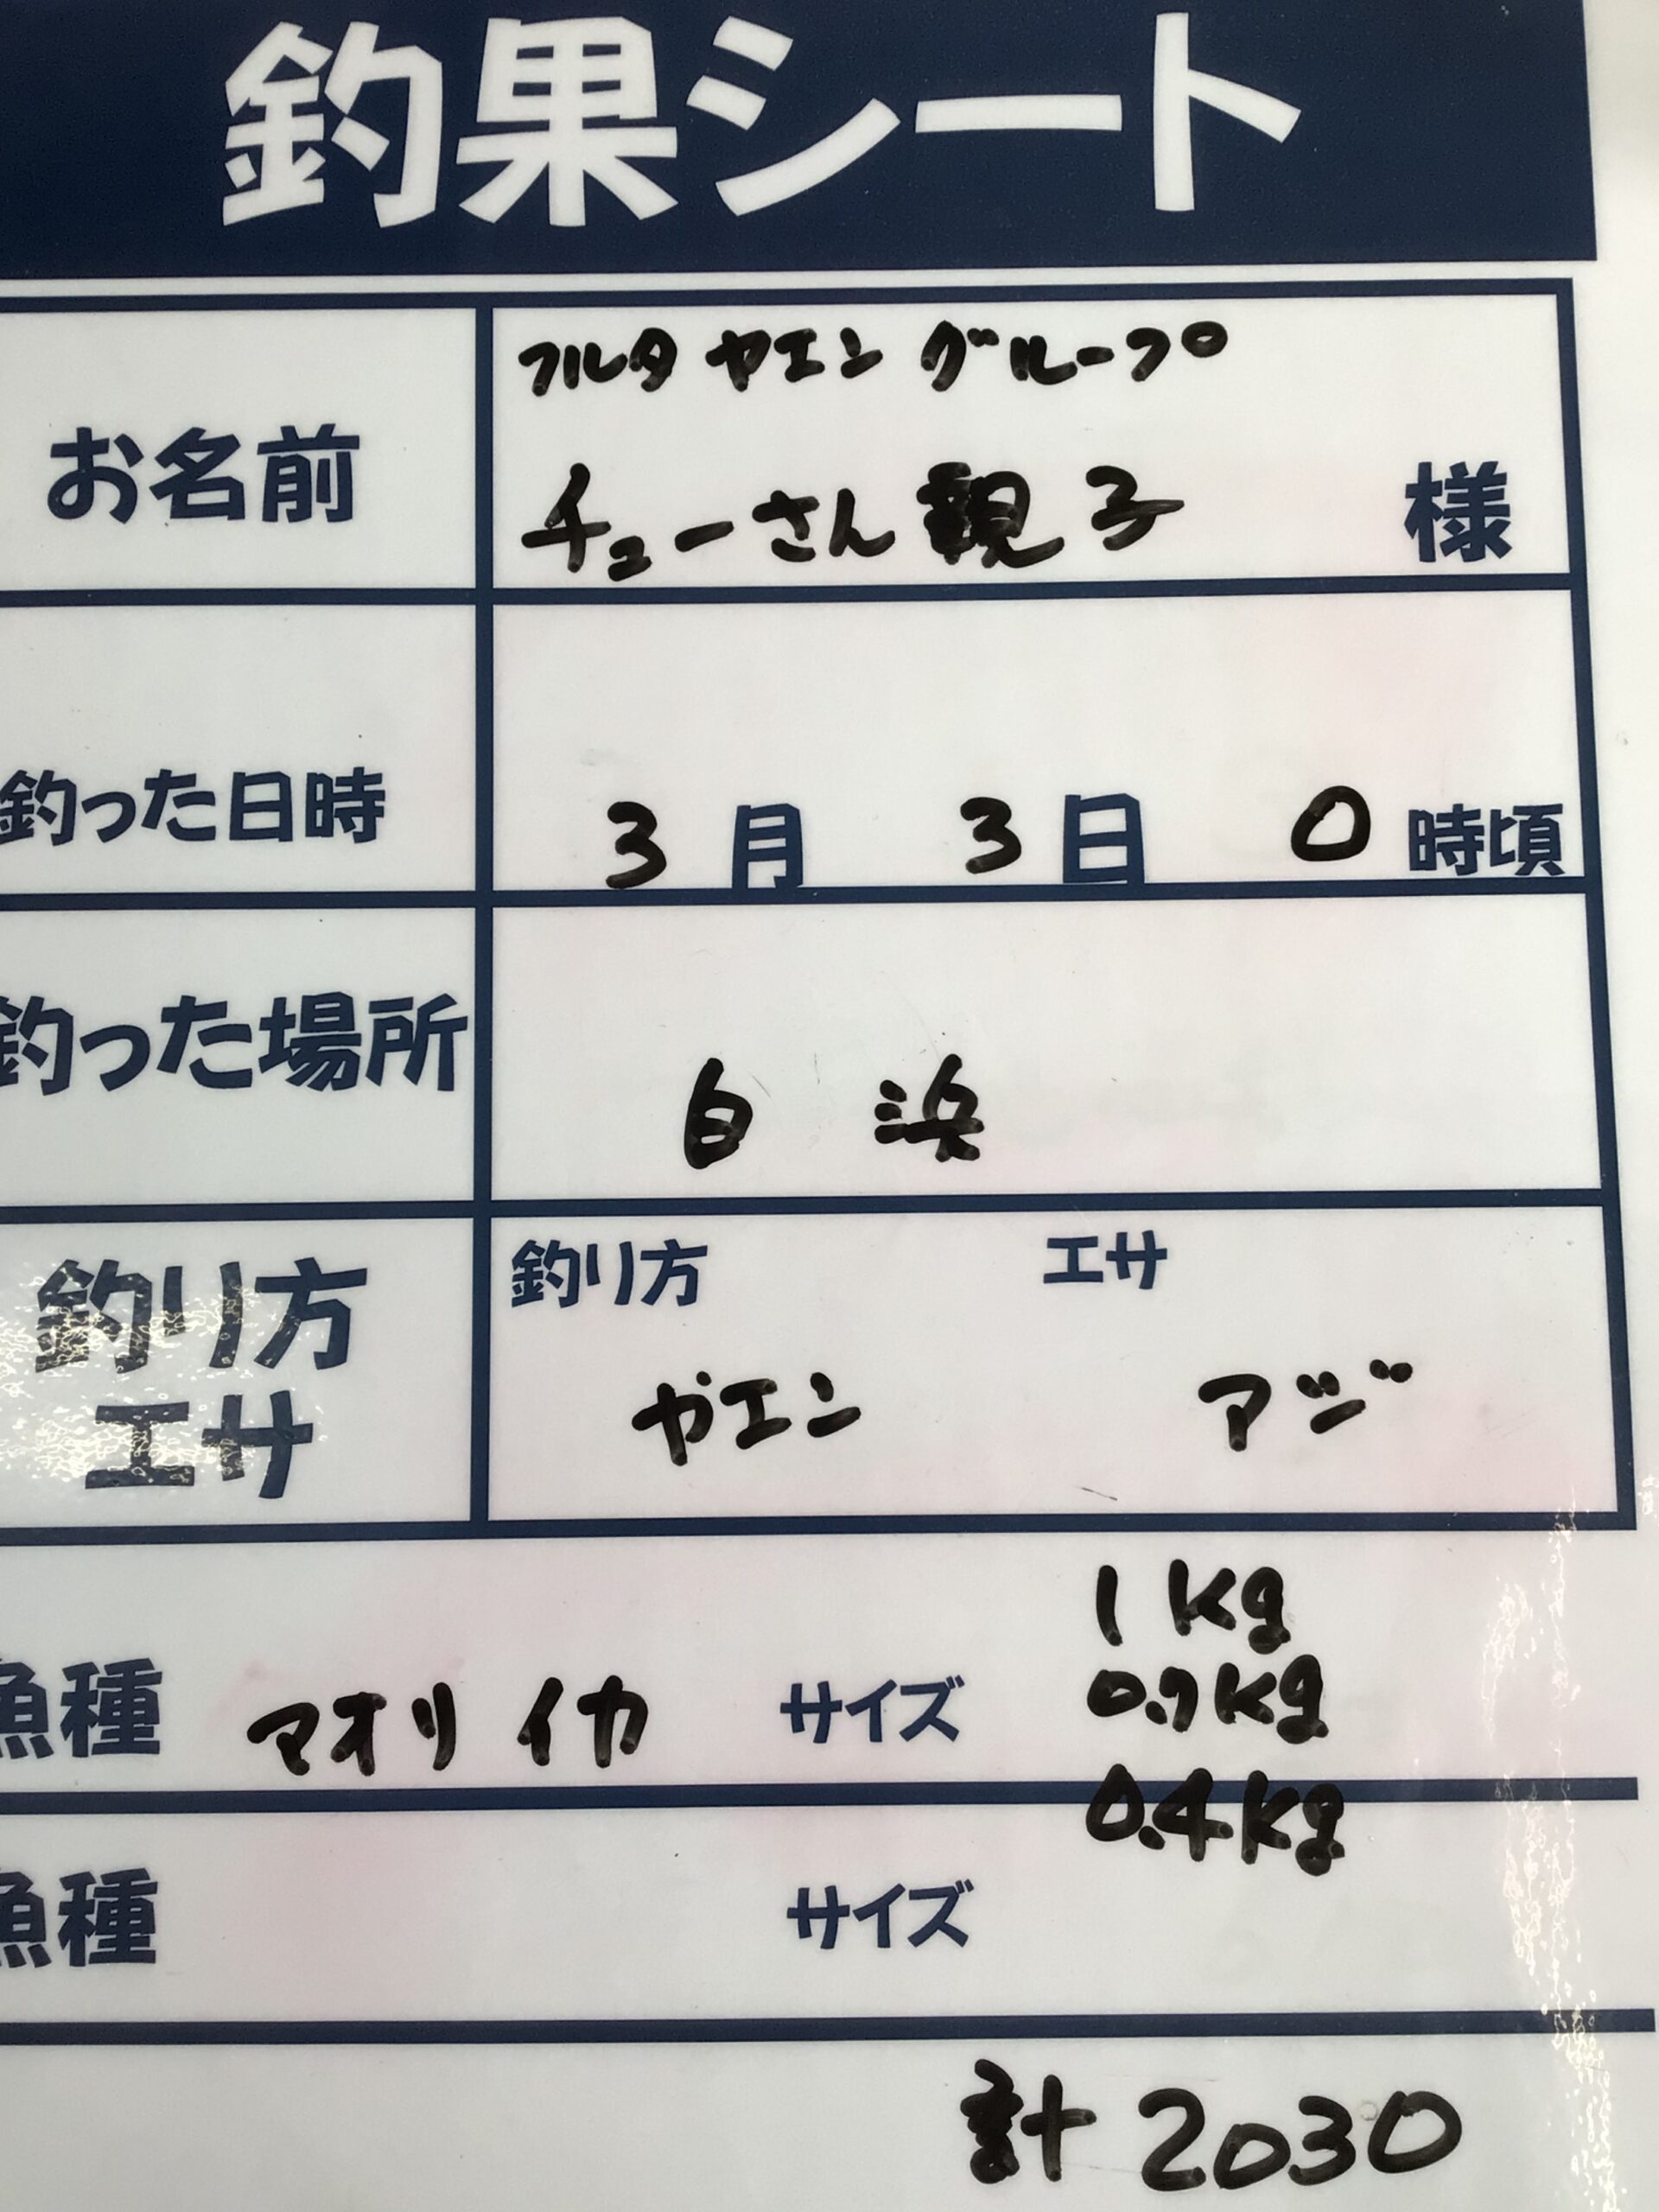 釣果シート
フルタ ヤエン グループ
お名前 チューさん親子 様
釣った日時 3月 3日 0時頃
釣った場所 白浜
釣り方 エサ
釣り方 エサ
ヤエン アジ
1kg
魚種 アオリイカ サイズ 0.7kg
0.4kg
魚種 サイズ
計2030